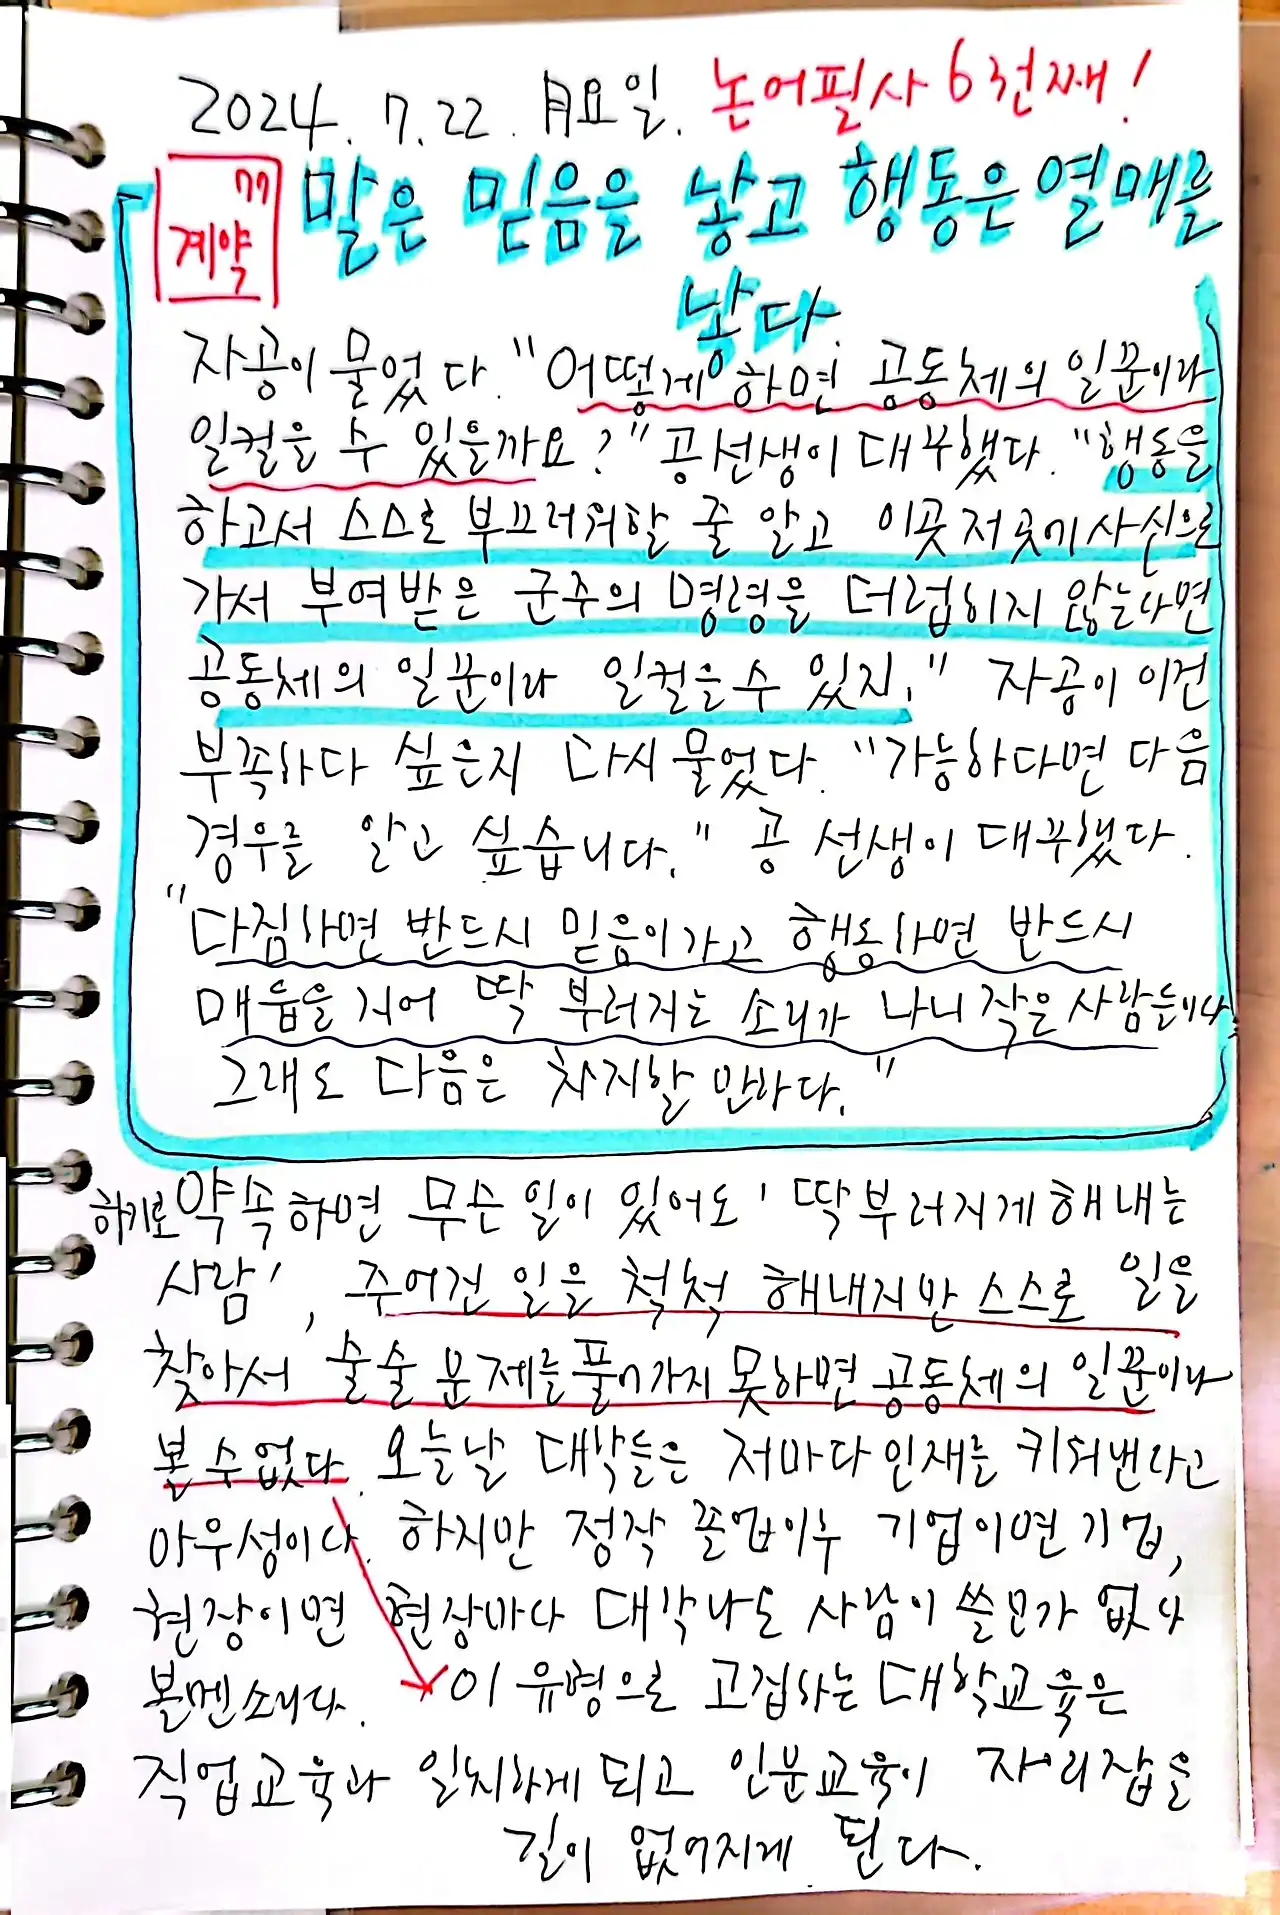 2024. 7. 22. 月요일. 논어필사 6권째!
77
계약
말은 믿음을 낳고 행동은 열매를
낳다.
자공이 물었다. "어떻게 하면 공동체의 일꾼이라
일컬을 수 있을까요?" 공선생이 대꾸했다. "행동을
하고서 스스로 부끄러워할 줄 알고 이곳저곳에 사신으로
가서 부여받은 군주의 명령을 더럽히지 않는다면
공동체의 일꾼이라 일컬을 수 있지." 자공이 이건
부족하다 싶은지 다시 물었다. "가능하다면 다음
경우를 알고 싶습니다." 공 선생이 대꾸했다.
"다짐하면 반드시 믿음이 가고 행동하면 반드시
매듭을 지어 딱 부러지는 소리가 나니 작은 사람들이다
그래도 다음은 차지할 만하다."
하기로 약속하면 무슨 일이 있어도 '딱부러지게 해내는
사람', 주어진 일을 척척 해내지만 스스로 일을
찾아서 술술 문제를 풀어가지 못하면 공동체의 일꾼이라
볼 수 없다. 오늘날 대학들은 저마다 인재를 키워낸다고
아우성이다. 하지만 정작 졸업이후 기업이면 기업,
현장이면 현장마다 대학 나온 사람이 쓸모가 없다
볼멘소리다. 이 유형으로 고집하는 대학교육은
직업교육과 일치하게 되고 인문교육이 자리잡을
길이 없어지게 된다.